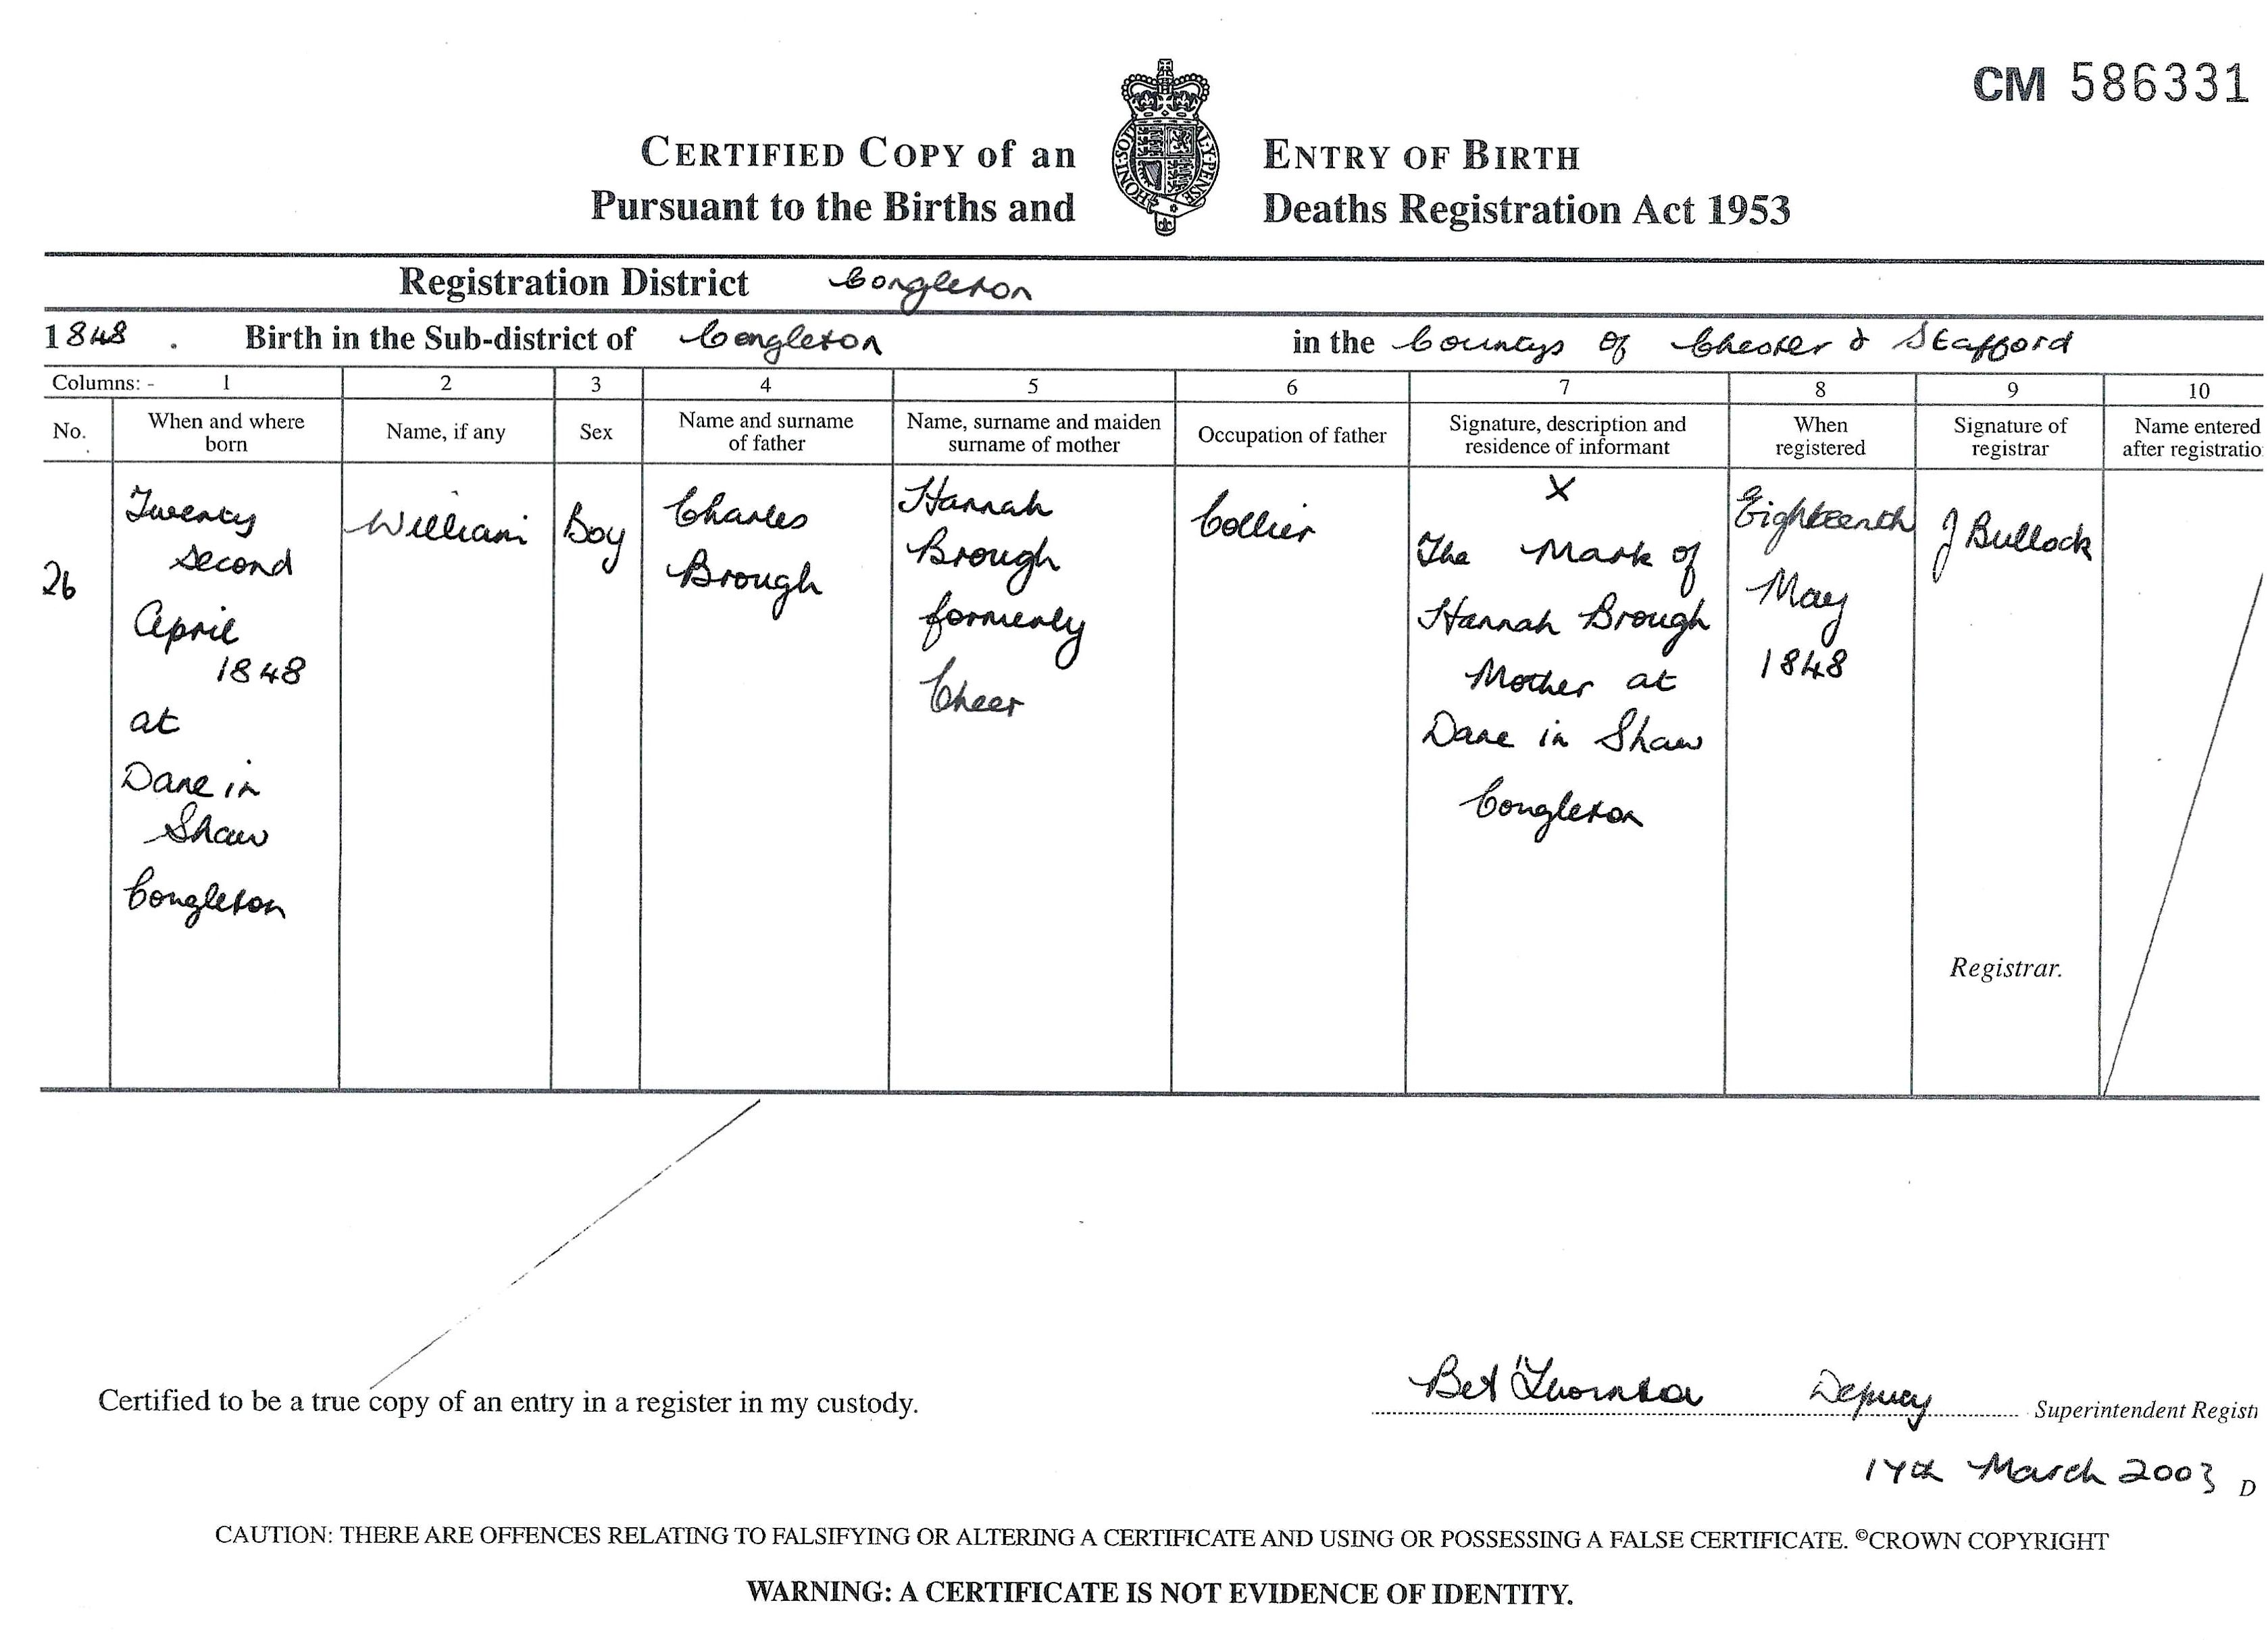 CM 586331
CERTIFIED COPY of an ENTRY OF BIRTH
Pursuant to the Births and Deaths Registration Act 1953
HONI·SOIT AL·Y·PENSE
Registration District Congleton
1848 . Birth in the Sub-district of Congleton in the Countys of Chester & Stafford
Columns: - 1 2 3 4 5 6 7 8 9 10
No.
When and where
born
Name, if any
Sex
Name and surname
of father
Name, surname and maiden
surname of mother
Occupation of father
Signature, description and
residence of informant
When
registered
Signature of
registrar
Name entered
after registratio
26
Twenty
second
April
1848
at
Dane in
Shaw
Congleton
William
Boy
Charles
Brough
Hannah
Brough
formerly
Cheer
Collier
X
The Mark of
Hannah Brough
Mother at
Dane in Shaw
Congleton
Eighteenth
May
1848
J Bullock
Registrar.
Certified to be a true copy of an entry in a register in my custody.
Bet Thornton Deputy Superintendent Regist
March 2003 D
CAUTION: THERE ARE OFFENCES RELATING TO FALSIFYING OR ALTERING A CERTIFICATE AND USING OR POSSESSING A FALSE CERTIFICATE. ©CROWN COPYRIGHT
WARNING: A CERTIFICATE IS NOT EVIDENCE OF IDENTITY.